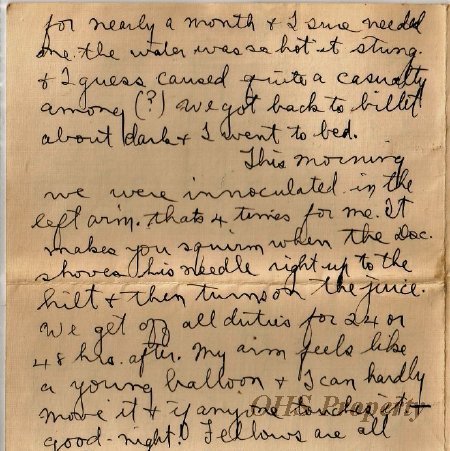 for nearly a month & I sure needed
one. the water was so hot it stung.
& I guess caused quite a casualty
among (?) We got back to billet
about dark & I went to bed.
This morning
we were innoculated in the
left arm. thats 4 times for me. It
makes you squirm when the Doc.
shoves his needle right up to the
hilt & then turns on the juice.
We get off all duties for 24 or
48 hrs. after. My arm feels like
a young balloon & I can hardly
move it & if anyone touches it
good-night! Fellows are all
OHS Property